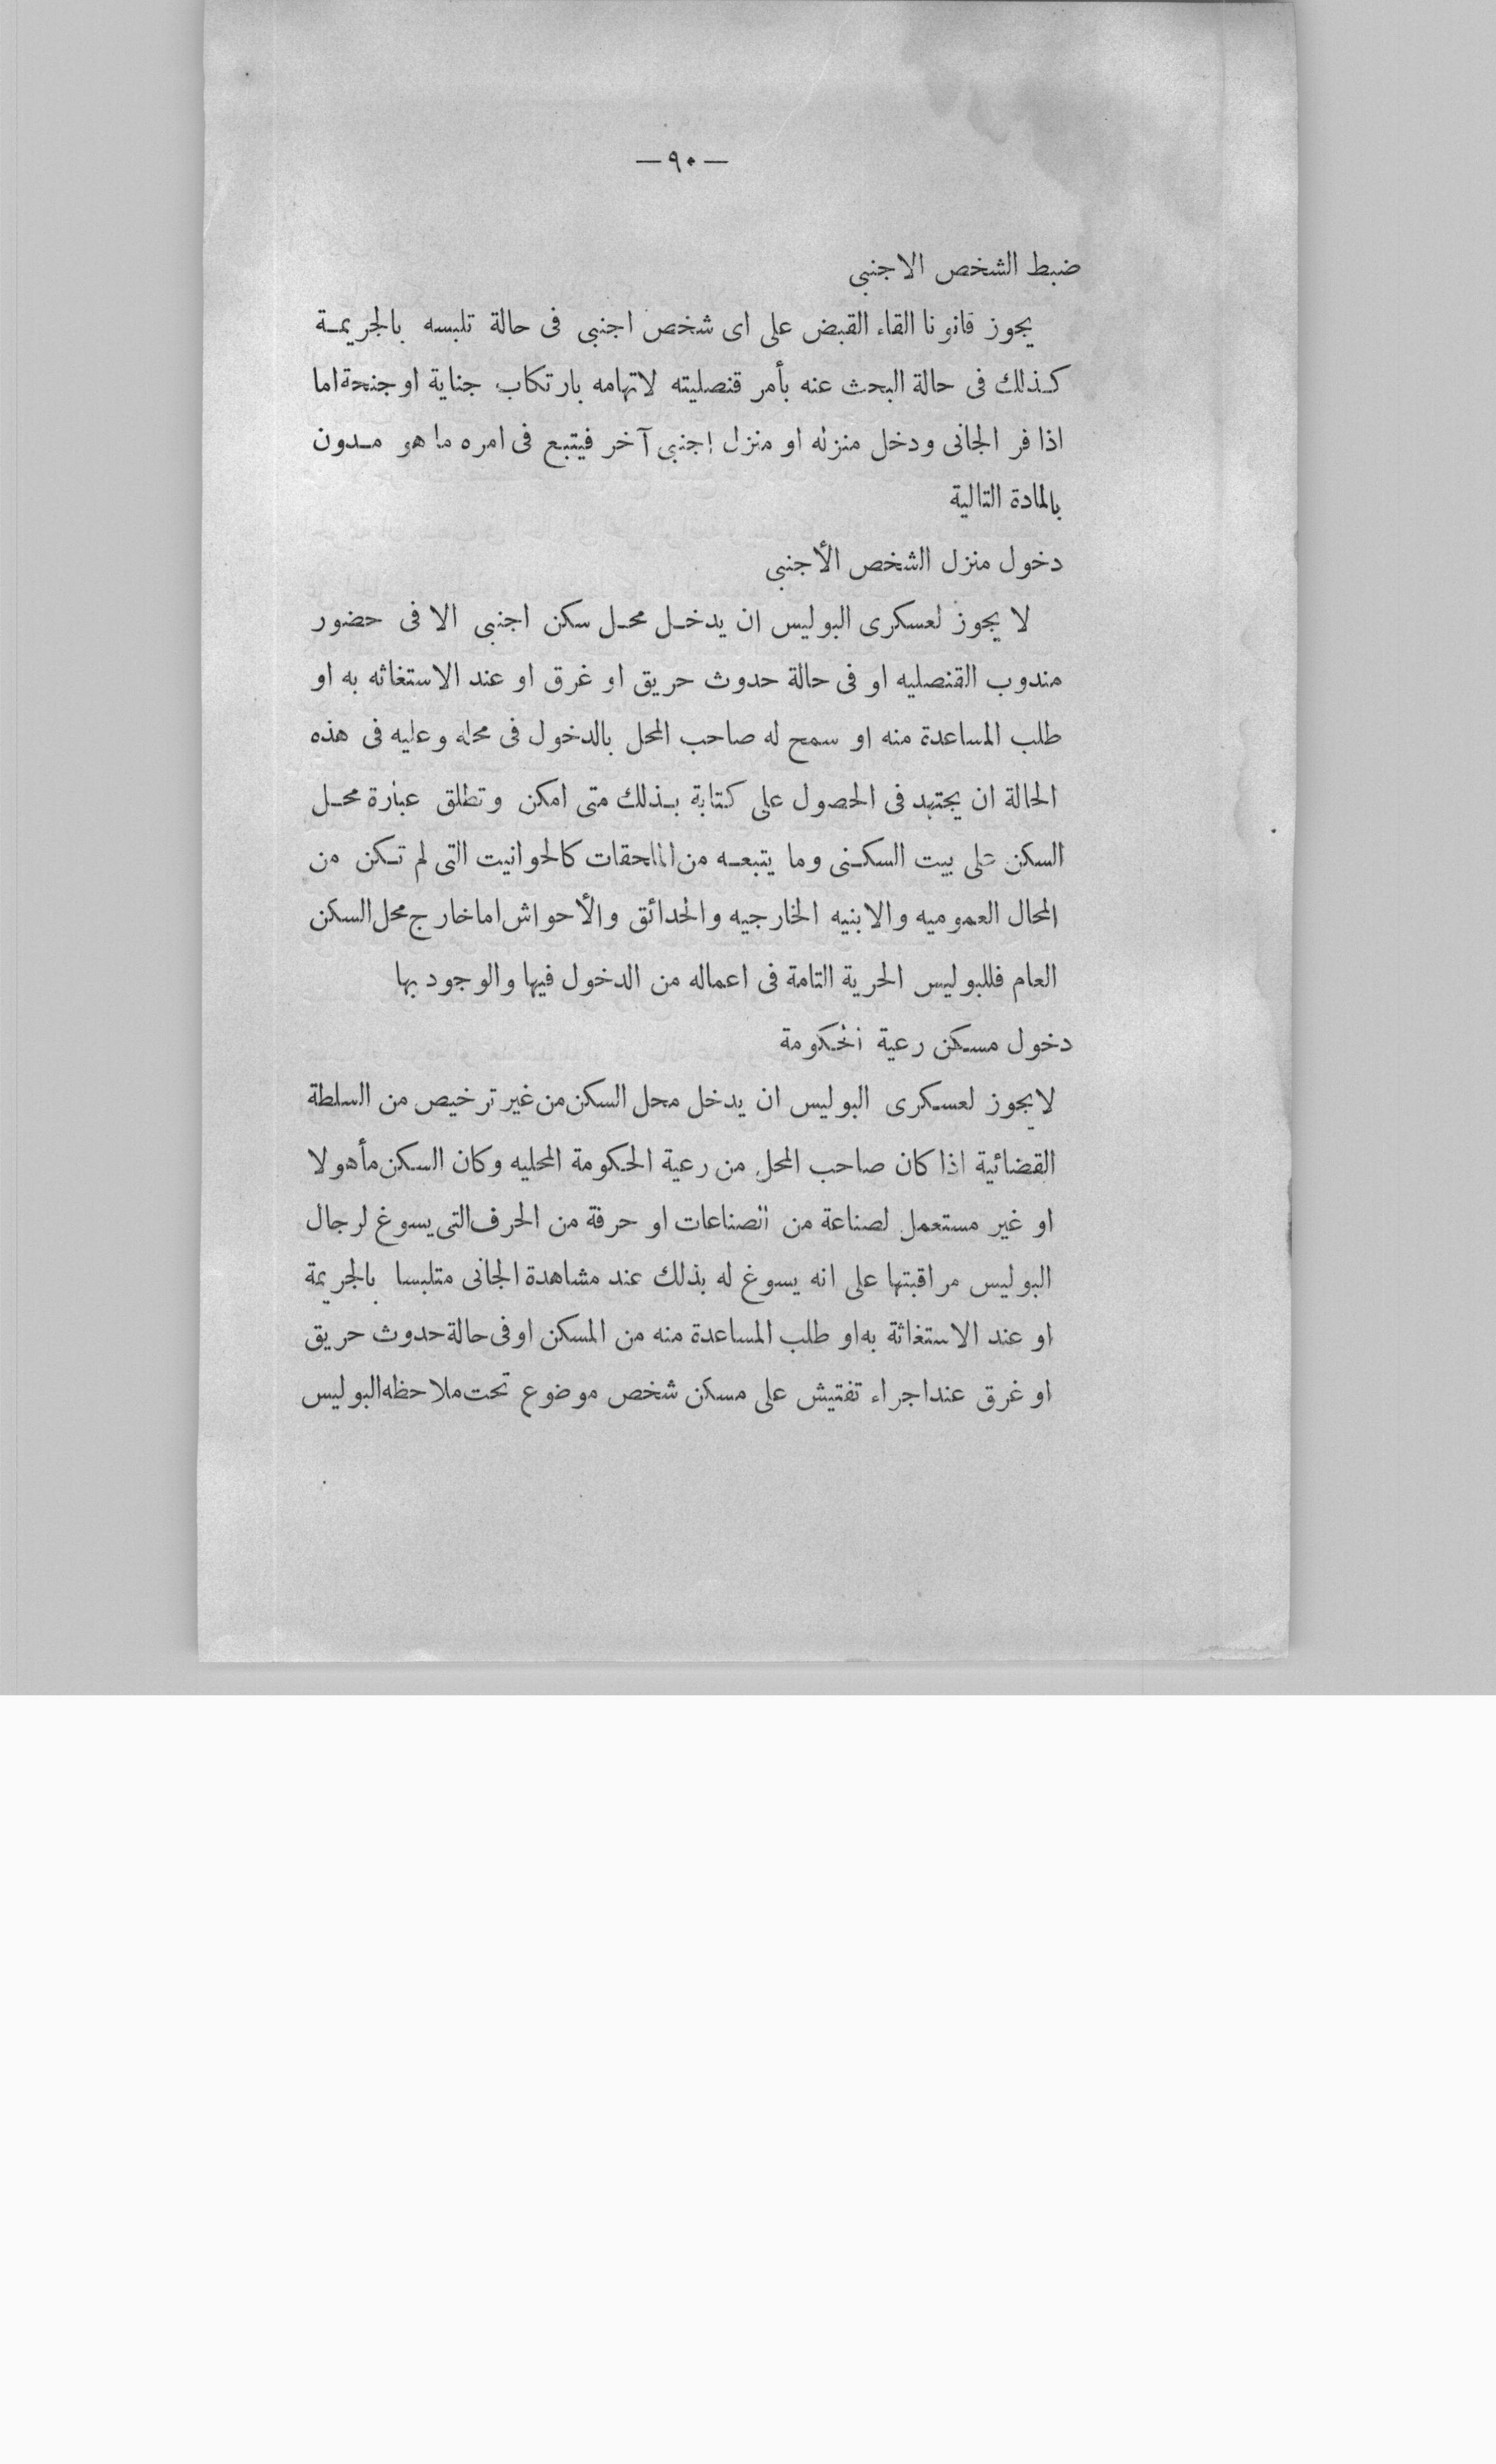 — ٩٠ —
ضبط الشخص الاجنبى
يجوز قانونا القاء القبض على اى شخص اجنبى فى حالة تلبسه بالجريمـة
كـذلك فى حالة البحث عنه بأمر قنصليته لاتهامه بارتكاب جناية او جنحة اما
اذا فر الجانى ودخل منزله او منزل اجنبى آخر فيتبع فى امره ما هو مـدون
بالمادة التالية
دخول منزل الشخص الأجنبى
لا يجوز لعسكرى البوليس ان يدخـل محـل سكن اجنبى الا فى حضور
مندوب القنصليه او فى حالة حدوث حريق او غرق او عند الاستغاثه به او
طلب المساعدة منه او سمح له صاحب المحل بالدخول فى محله وعليه فى هذه
الحالة ان يجتهد فى الحصول على كتابة بـذلك متى امكن وتطلق عبارة محـل
السكن على بيت السكـنى وما يتبعـه من الملحقات كالحوانيت التى لم تـكن من
المحال العموميه والابنيه الخارجيه والحدائق والأحواش اما خارج محل السكن
العام فللبوليس الحرية التامة فى اعماله من الدخول فيها والوجود بها
دخول مسكن رعية الحكومة
لا يجوز لعسكرى البوليس ان يدخل محل السكن من غير ترخيص من السلطة
القضائية اذا كان صاحب المحل من رعية الحكومة المحليه وكان السكن مأهولا
او غير مستعمل لصناعة من الصناعات او حرفة من الحرف التى يسوغ لرجال
البوليس مراقبتها على انه يسوغ له بذلك عند مشاهدة الجانى متلبسا بالجريمة
او عند الاستغاثة به او طلب المساعدة منه من المسكن او فى حالة حدوث حريق
او غرق عند اجراء تفتيش على مسكن شخص موضوع تحت ملاحظه البوليس